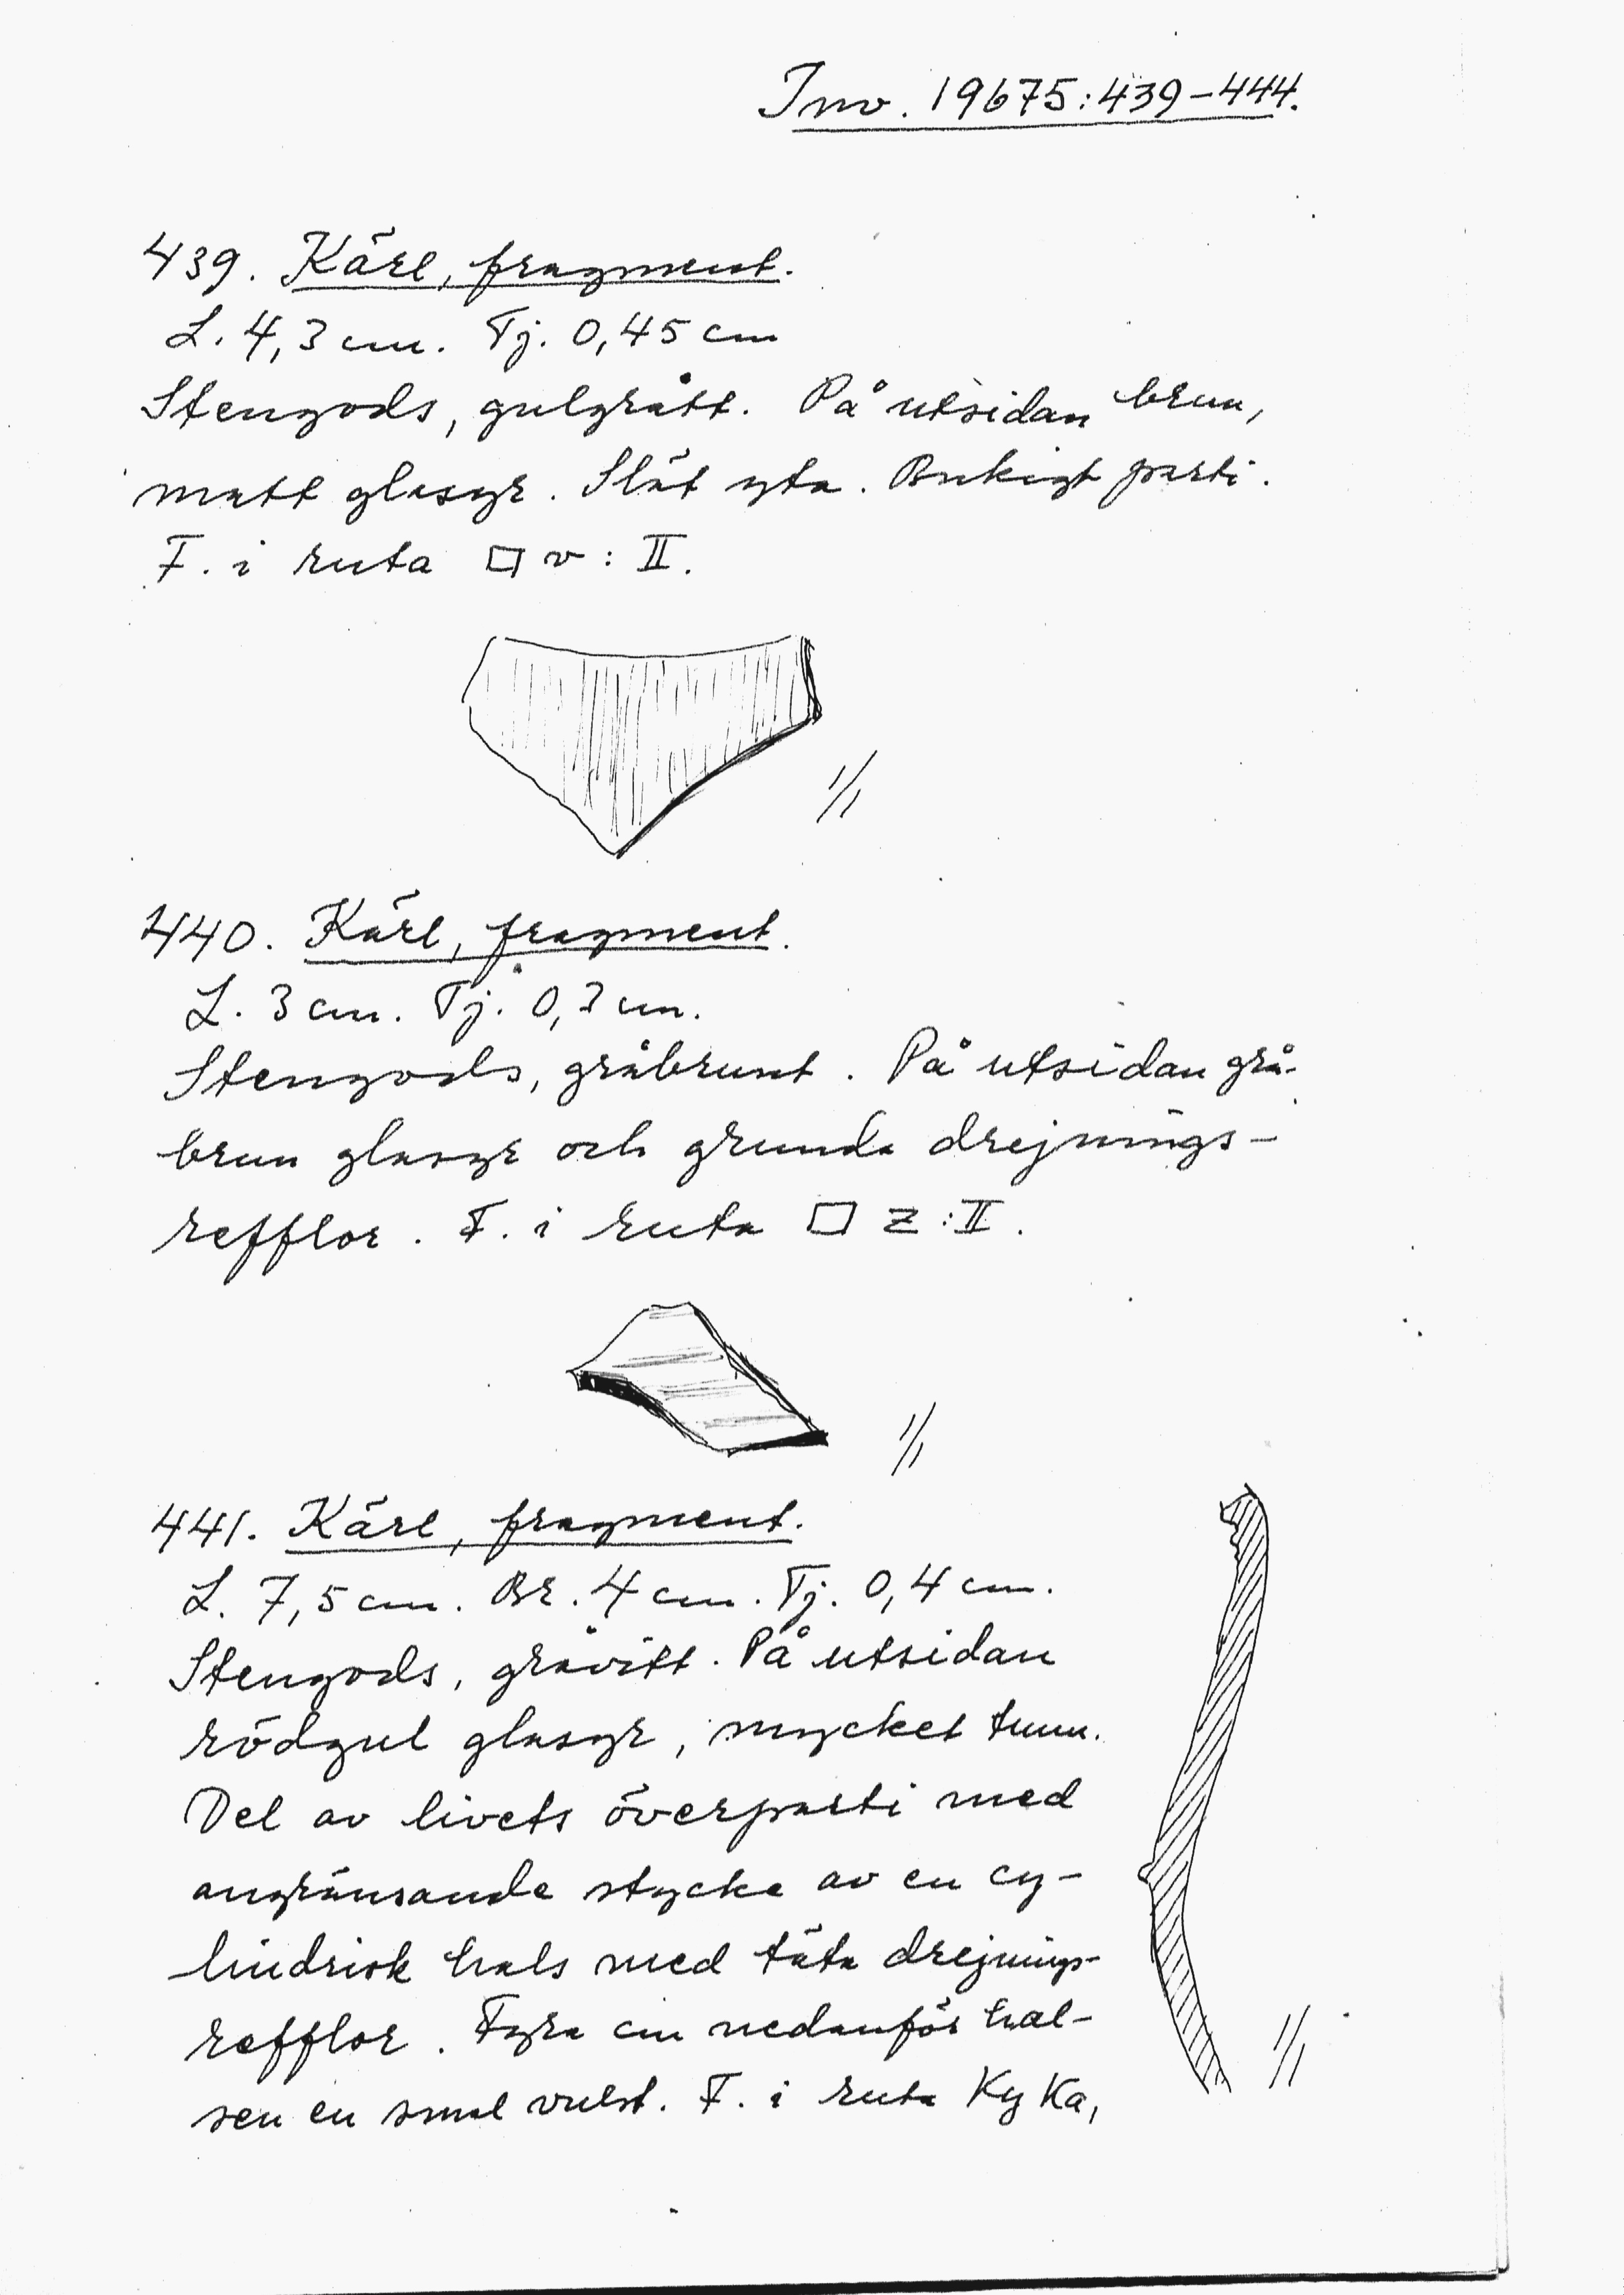 Inv. 19675:439–444.
439. Kärl, fragment.
L. 4,3 cm. Tj. 0,45 cm
Stengods, gulgrått. På utsidan brun,
matt glasyr. Slät yta. Bukigt parti.
F. i ruta □ v : II.
1/1
440. Kärl, fragment.
L. 3 cm. Tj. 0,3 cm.
Stengods, gråbrunt. På utsidan grå-
brun glasyr och grunda drejnings-
refflor. F. i ruta □ z : II.
1/1
441. Kärl, fragment.
L. 7,5 cm. Br. 4 cm. Tj. 0,4 cm.
Stengods, gråvitt. På utsidan
rödgul glasyr, mycket tunn.
Del av livets överparti med
angränsande stycke av en cy-
lindrisk hals med täta drejnings-
refflor. Fyra cm nedanför hal-
sen en smal vulst. F. i ruta Ky Ka,
1/1